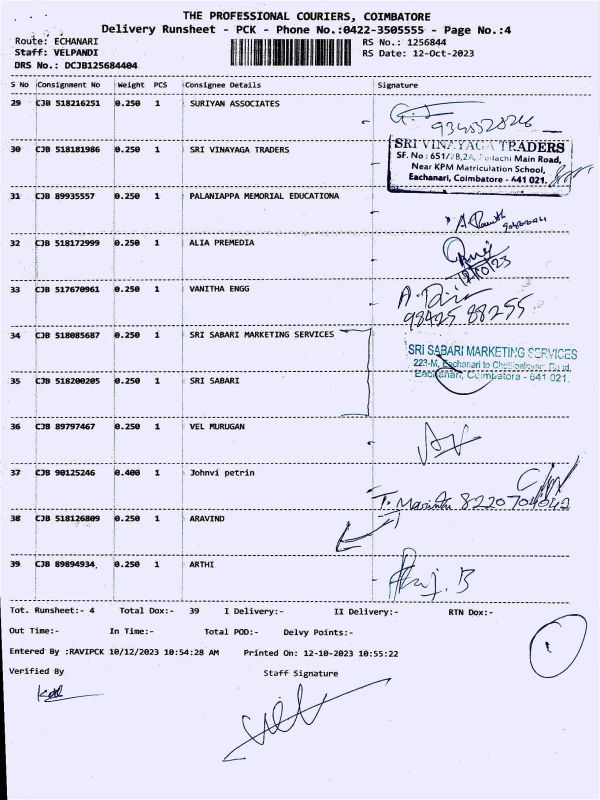 THE PROFESSIONAL COURIERS, COIMBATORE
Delivery Runsheet - PCK - Phone No.:0422-3505555 - Page No.:4
Route: ECHANARI RS No.: 1256844
Staff: VELPANDI RS Date: 12-Oct-2023
DRS No.: DCJB125684404
S No Consignment No Weight PCS Consignee Details Signature
29 CJB 518216251 0.250 1 SURIYAN ASSOCIATES
30 CJB 518181986 0.250 1 SRI VINAYAGA TRADERS
SRI VINAYAGA TRADERS
Main Road,
Near KPM Matriculation School,
Eachanari, Coimbatore - 641 021.
31 CJB 89935557 0.250 1 PALANIAPPA MEMORIAL EDUCATIONA
32 CJB 518172999 0.250 1 ALIA PREMEDIA
12/10/23
33 CJB 517670961 0.250 1 VANITHA ENGG
98425 88255
34 CJB 518085687 0.250 1 SRI SABARI MARKETING SERVICES
SRI SABARI MARKETING SERVICES
223-M, Eachanari to
Eachanari, Coimbatore - 641 021.
35 CJB 518200205 0.250 1 SRI SABARI
36 CJB 89797467 0.250 1 VEL MURUGAN
37 CJB 90125246 0.400 1 Johnvi petrin
38 CJB 518126809 0.250 1 ARAVIND
39 CJB 89894934 0.250 1 ARTHI
Tot. Runsheet:- 4 Total Dox:- 39 I Delivery:- II Delivery:- RTN Dox:-
Out Time:- In Time:- Total POD:- Delvy Points:-
Entered By :RAVIPCK 10/12/2023 10:54:28 AM Printed On: 12-10-2023 10:55:22
Verified By Staff Signature